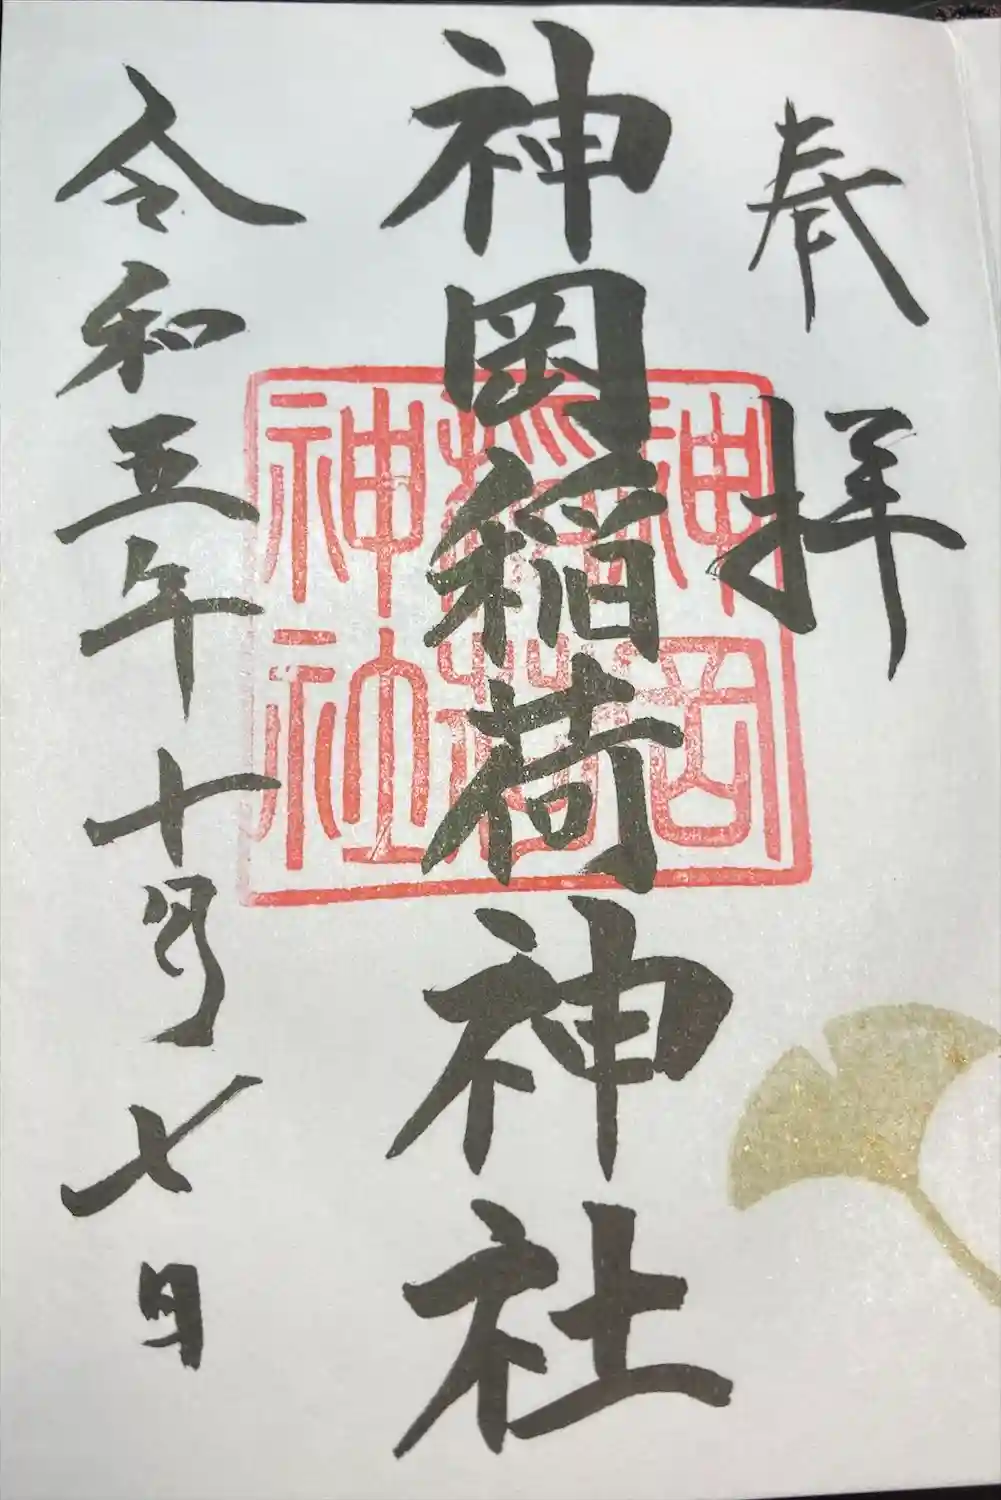 奉拝
神岡稲荷神社
神岡
稲荷
神社
令和五年十月七日